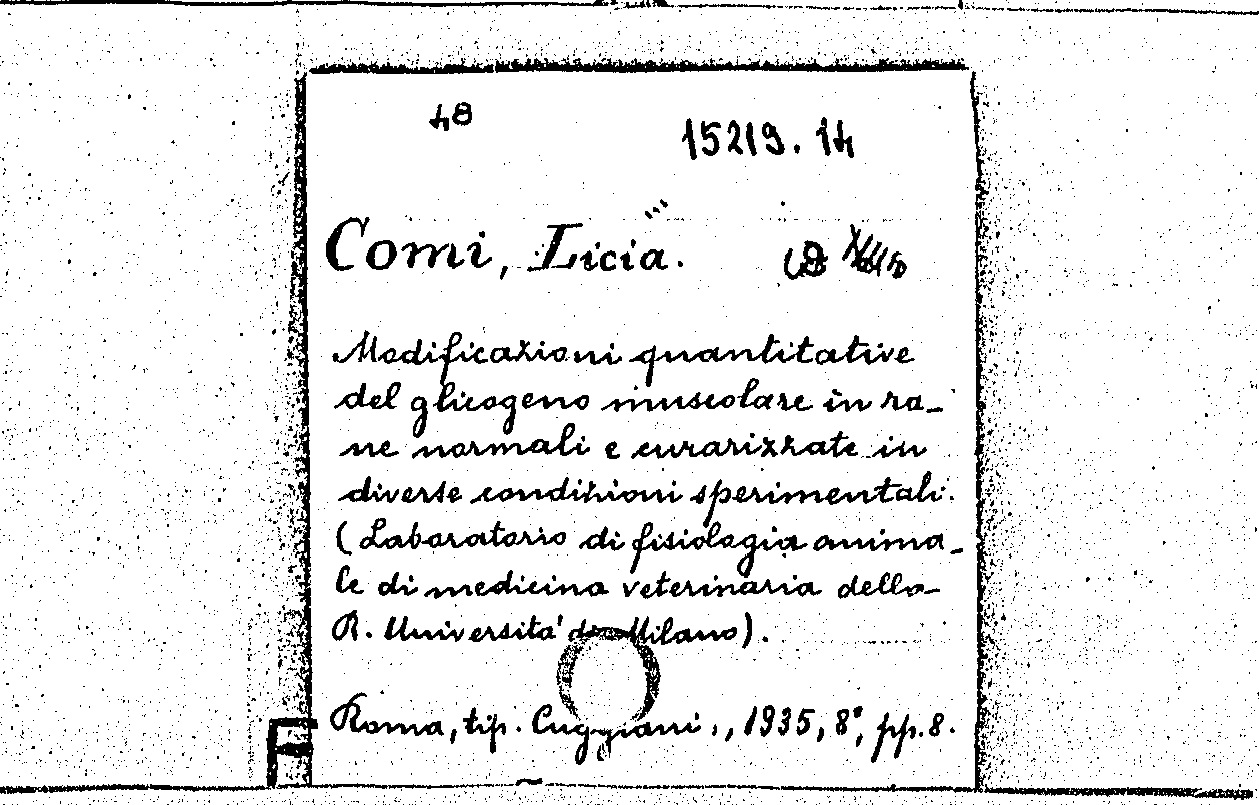 48
15219.14
Comi, Licia.
Modificazioni quantitative
del glicogeno muscolare in ra-
ne normali e curarizzate in
diverse condizioni sperimentali.
(Laboratorio di fisiologia anima-
le di medicina veterinaria della
R. Università di Milano).
Roma, tip. Cuggiani., 1935, 8°, pp. 8.